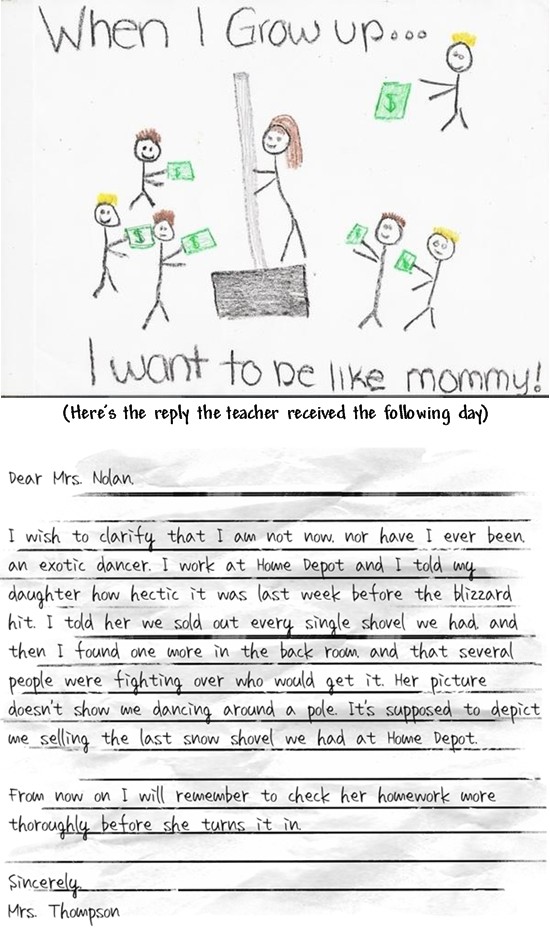 When I Grow up...
$
$
$
$
$
$
I want to be like mommy!
(Here's the reply the teacher received the following day)
Dear Mrs. Nolan,
I wish to clarify that I am not now, nor have I ever been,
an exotic dancer. I work at Home Depot and I told my
daughter how hectic it was last week before the blizzard
hit. I told her we sold out every single shovel we had, and
then I found one more in the back room, and that several
people were fighting over who would get it. Her picture
doesn't show me dancing around a pole. It's supposed to depict
me selling the last snow shovel we had at Home Depot.
From now on I will remember to check her homework more
thoroughly before she turns it in.
Sincerely,
Mrs. Thompson